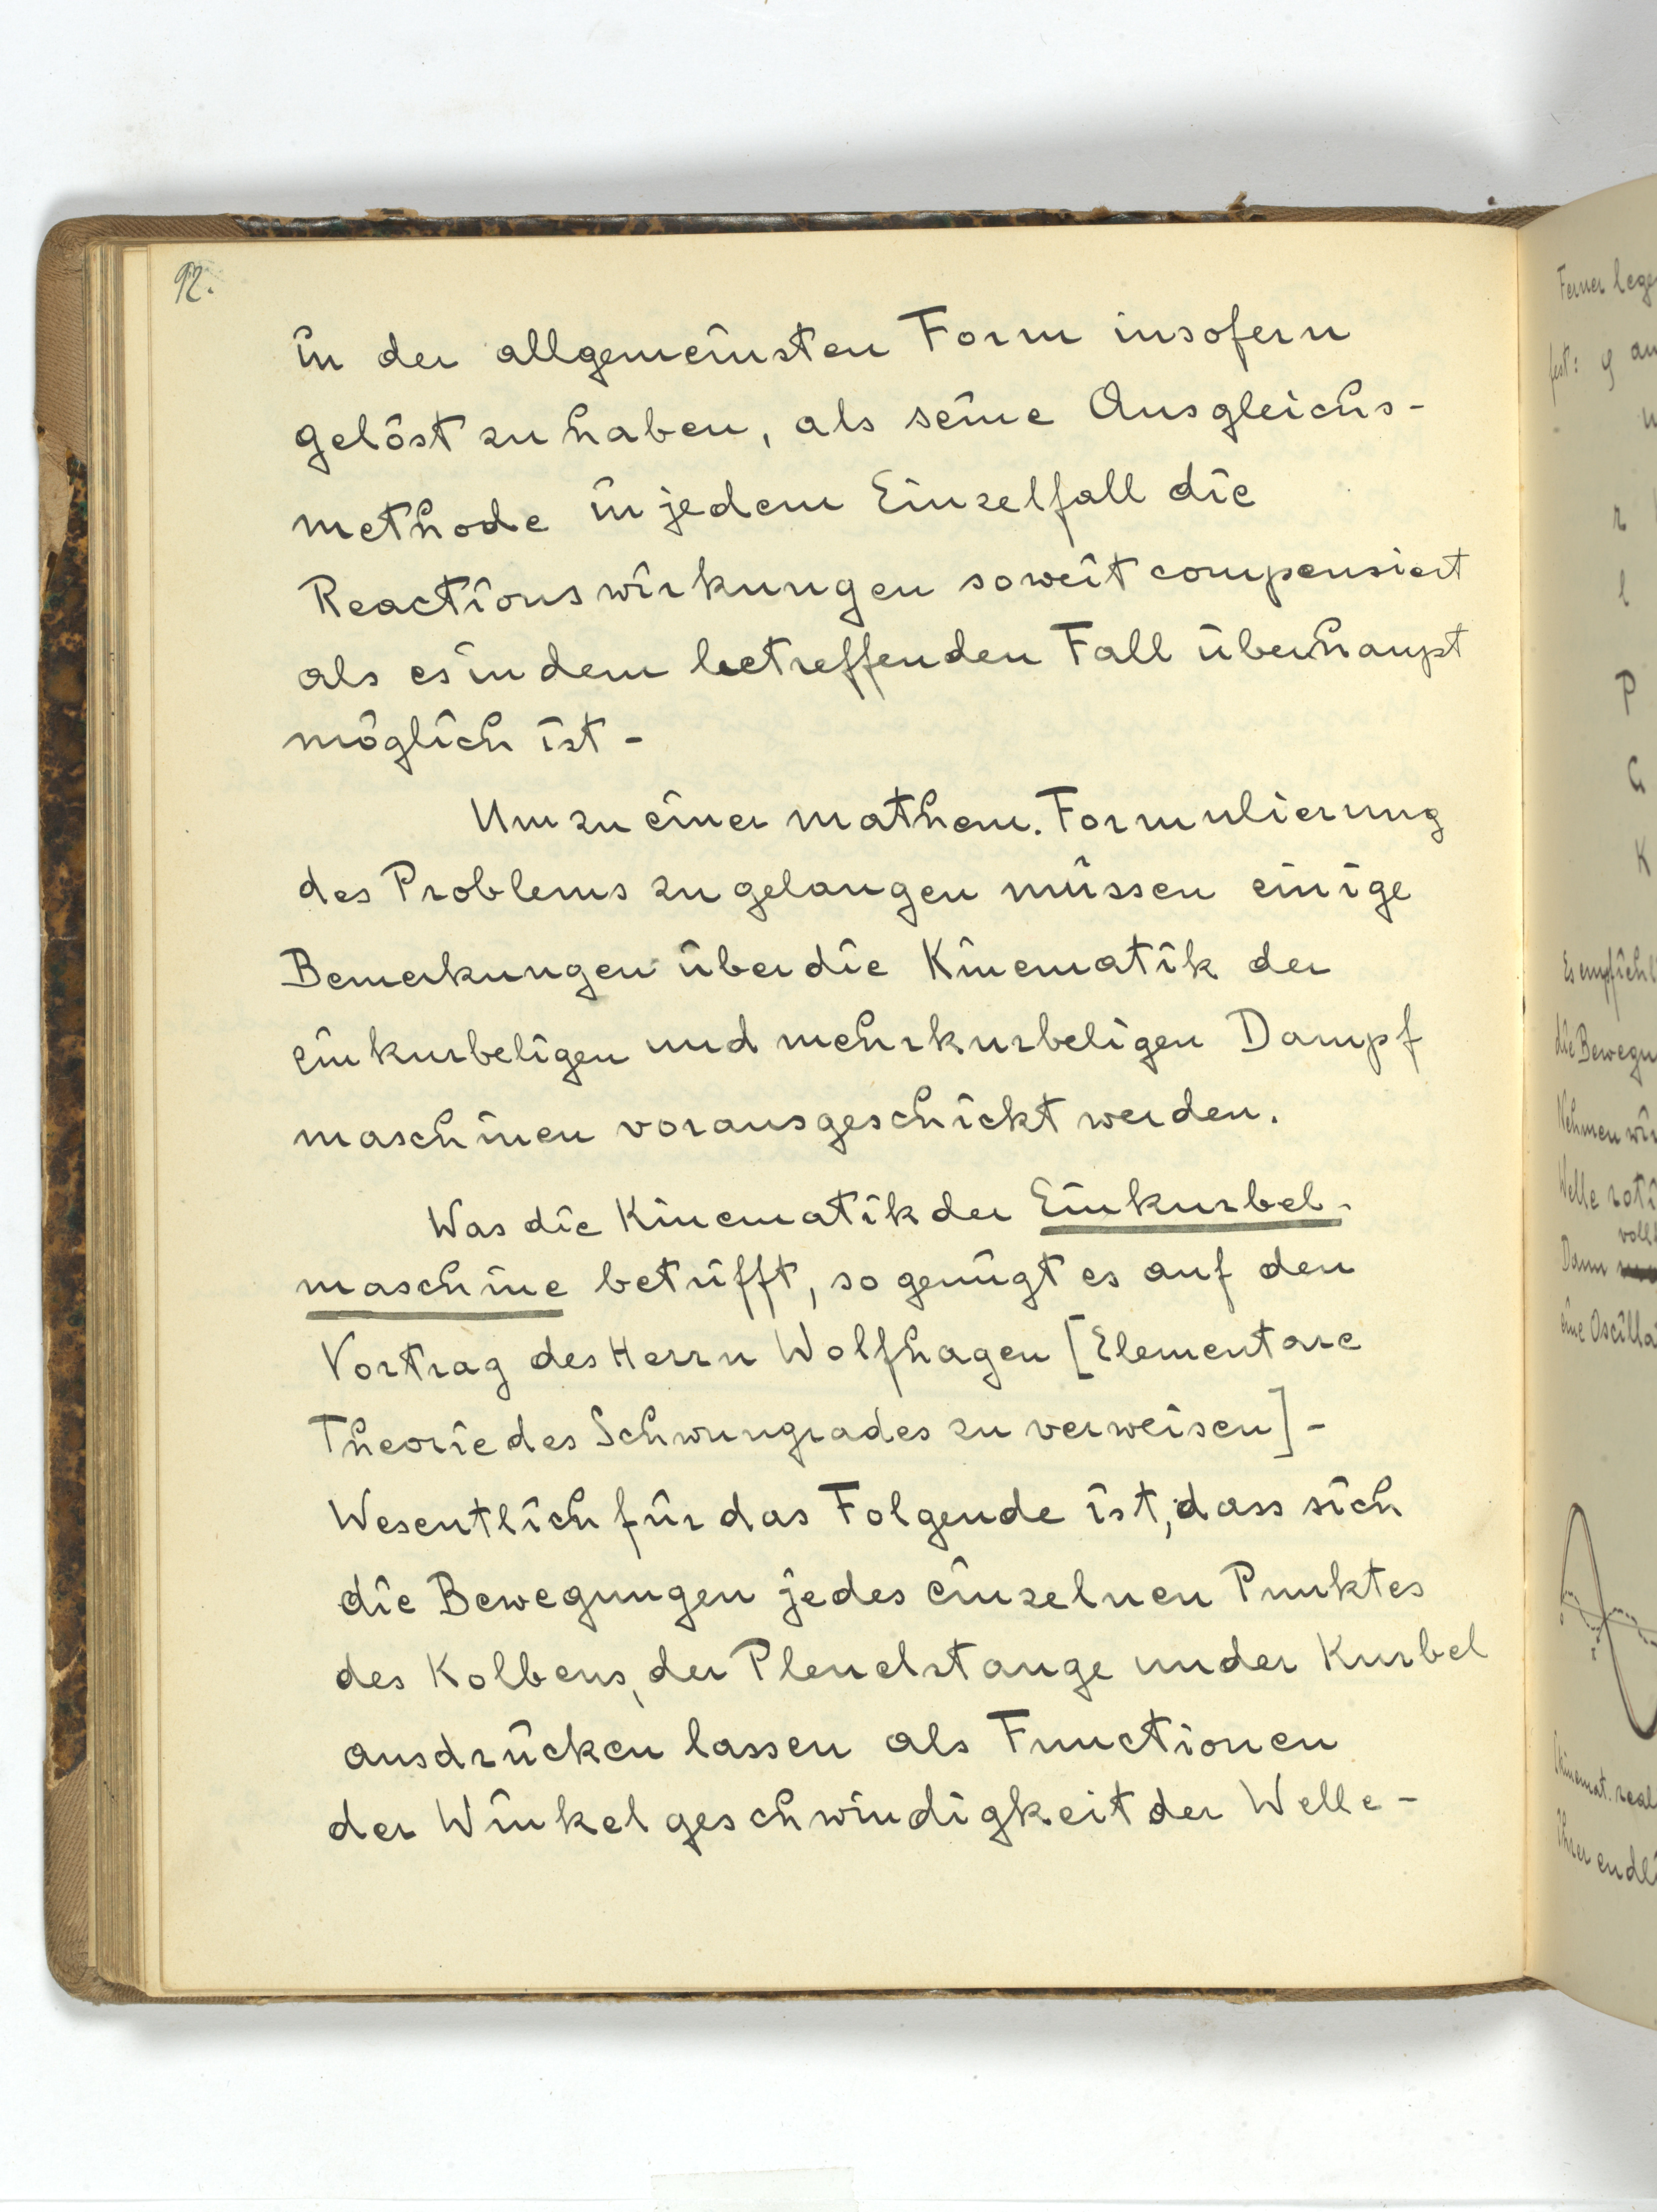 92.
in der allgemeinsten Form insofern
gelöst zu haben, als seine Ausgleichs-
methode in jedem Einzelfall die
Reactionswirkungen soweit compensiert
als es in dem betreffenden Fall überhaupt
möglich ist -
Um zu einer mathem. Formulierung
des Problems zu gelangen müssen einige
Bemerkungen über die Kinematik der
einkurbeligen und mehrkurbeligen Dampf
maschinen vorausgeschickt werden.
Was die Kinematik der Einkurbel-
maschine betrifft, so genügt es auf den
Vortrag des Herrn Wolfhagen [Elementare
Theorie des Schwungrades zu verweisen] -
Wesentlich für das Folgende ist, dass sich
die Bewegungen jedes einzelnen Punktes
des Kolbens, der Pleuelstange und der Kurbel
ausdrücken lassen als Functionen
der Winkelgeschwindigkeit der Welle -
Ferner lege
fest: φ
r
l
P
G
K
Es empfiehl
die Bewegu
Nehmen wir
Welle roti
voll
Dann
eine Oscilla
Kinemat. real
Ihrer endli